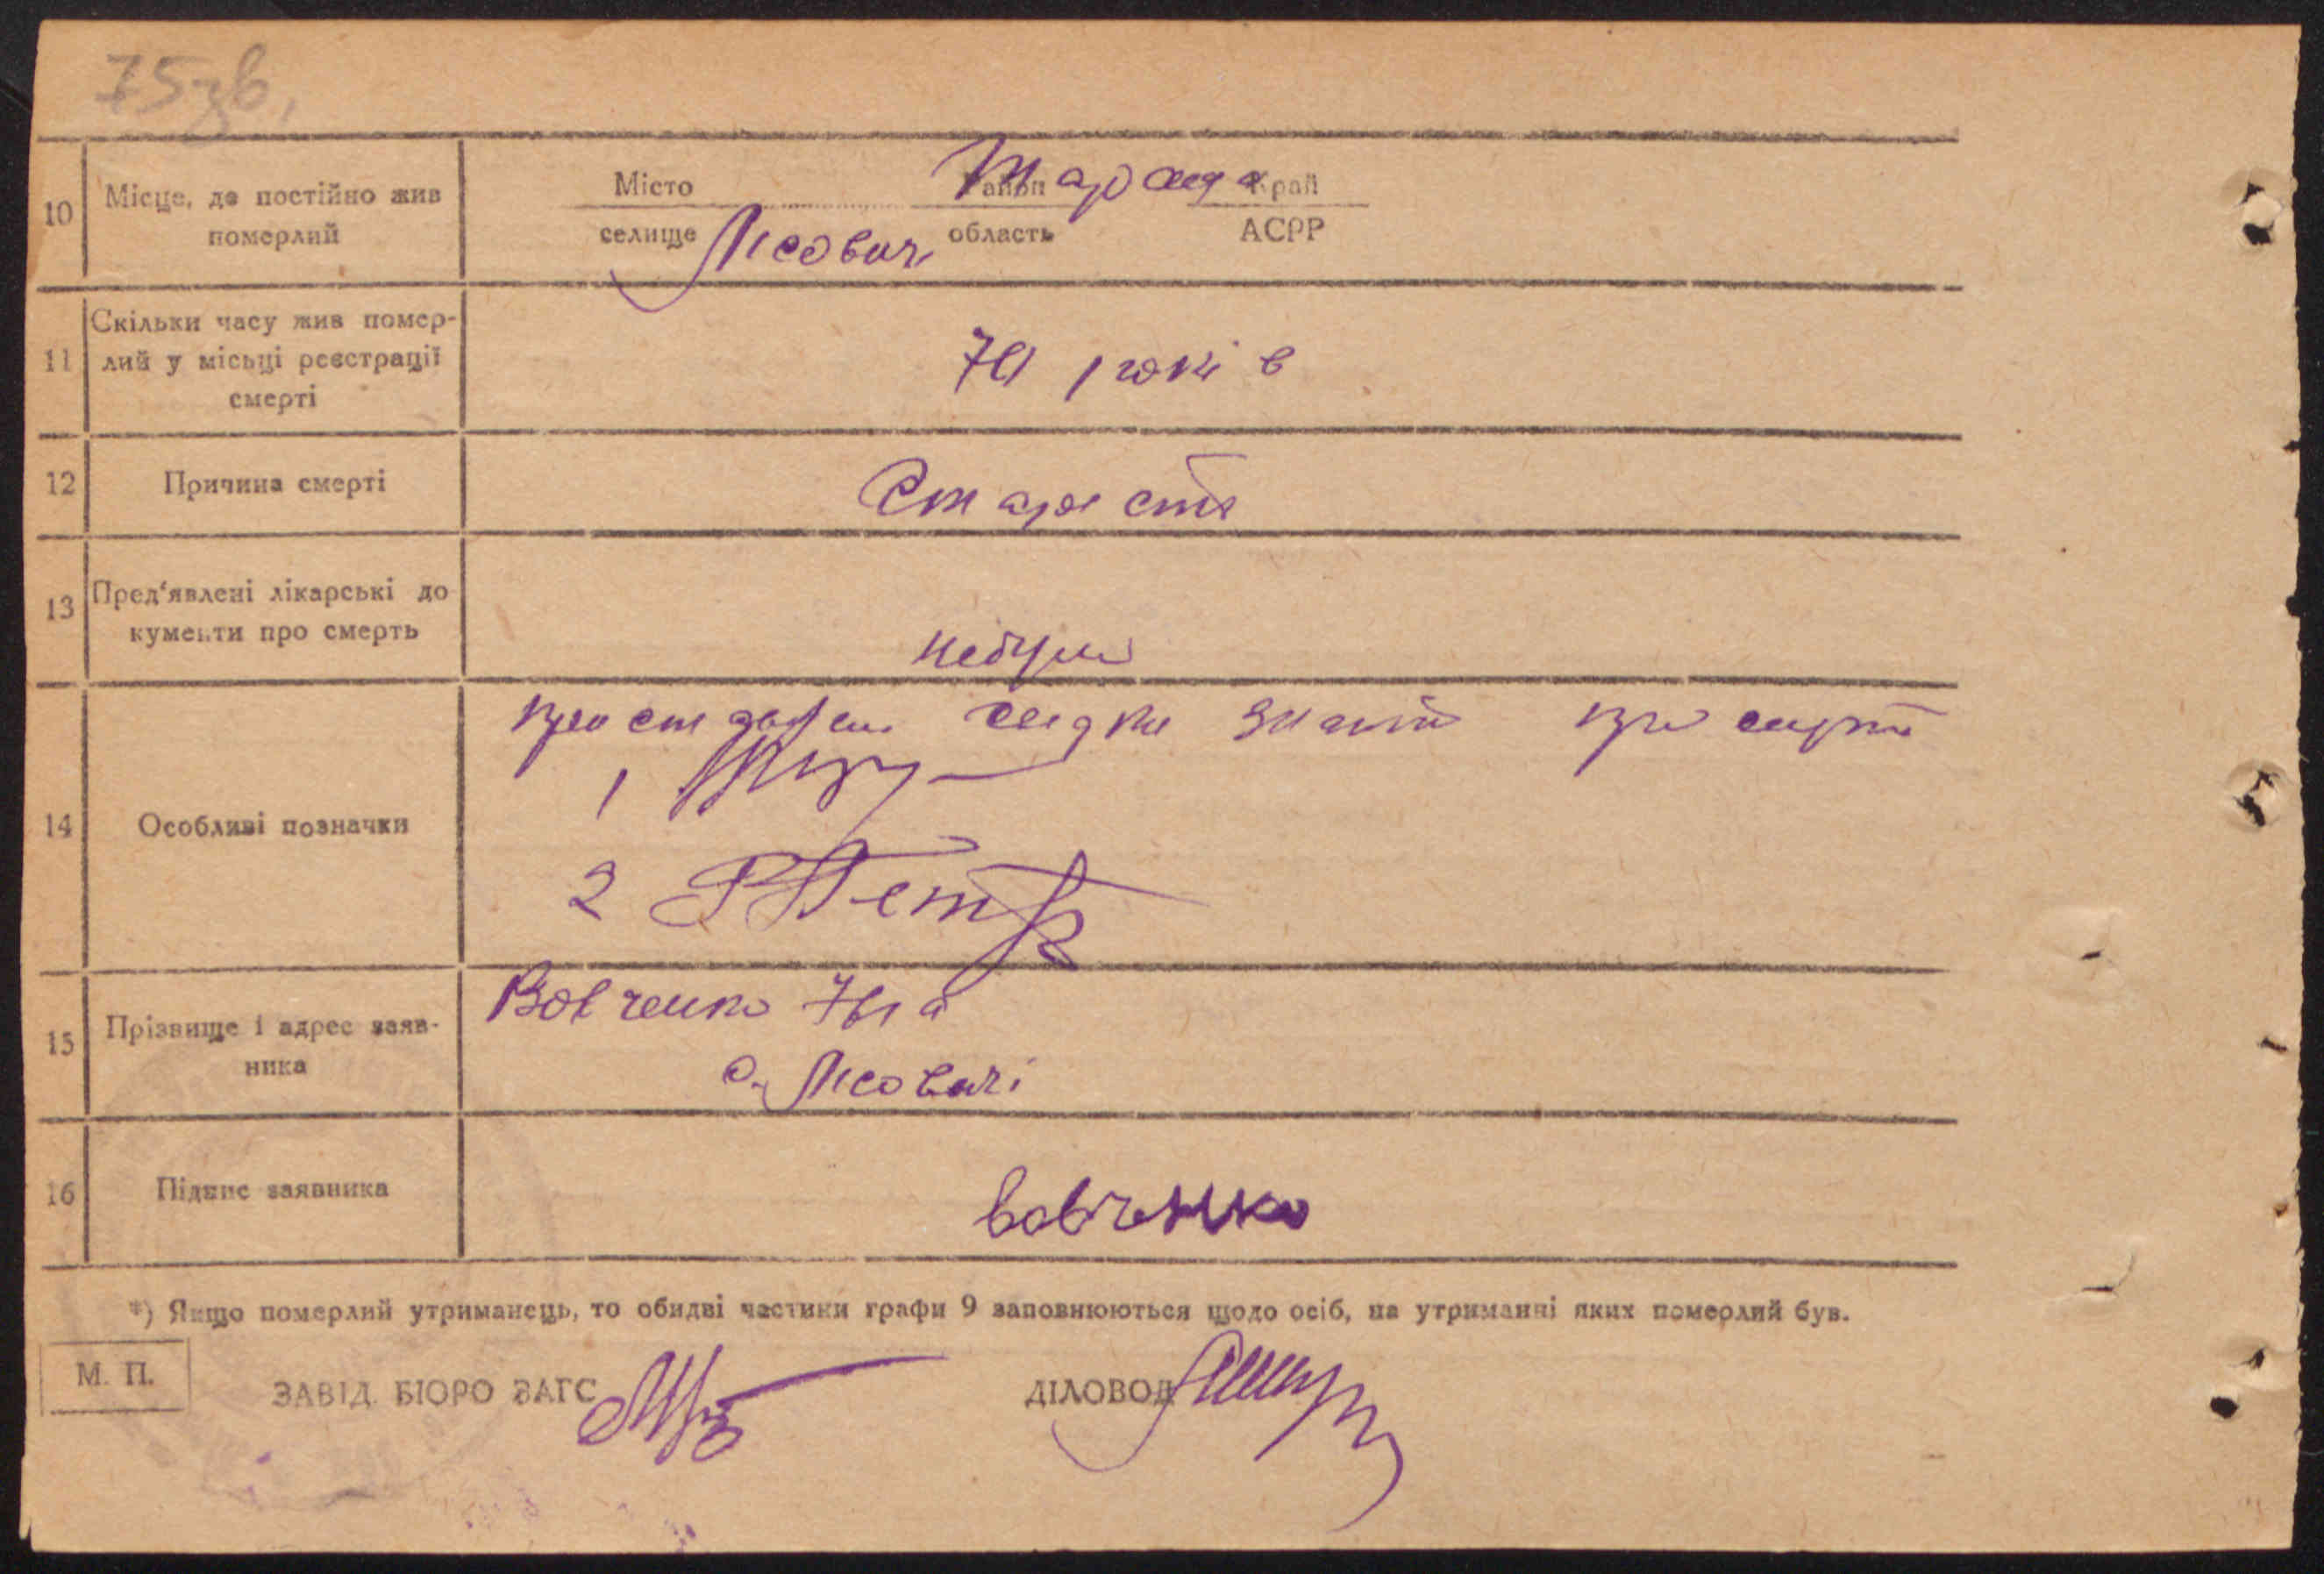 75зв.
10 Місце, де постійно жив померлий
Місто Район Тараща Край
селище Лісовичі область АСРР
11 Скільки часу жив помер-
лий у місьці реєстрації
смерті
років
12 Причина смерті Старість
13 Пред'явлені лікарські до
кументи про смерть
небули
14 Особливі позначки
1
2
15 Прізвище і адрес заяв-
ника
Вовченко
с. Лісовичі
16 Підпис заявника Вовченко
*) Якщо померлий утриманець, то обидві частини графи 9 заповнюються щодо осіб, на утриманні яких померлий був.
М. П.
ЗАВІД. БЮРО ЗАГС ДІЛОВОД